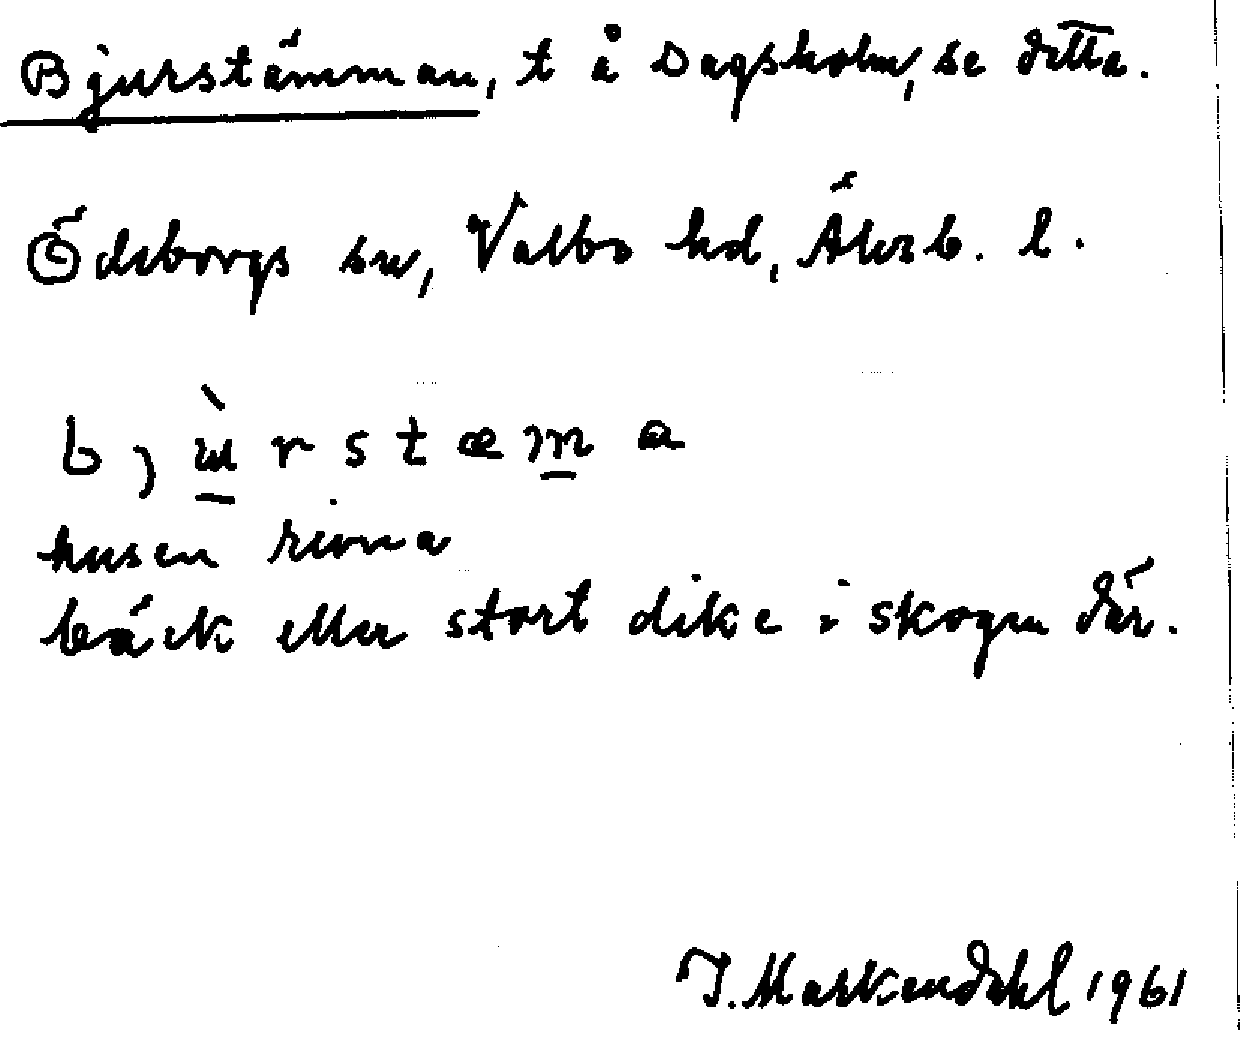 Bjurstämman, t å Dagsholm, se detta.
Ödeborgs sn, Valbo hd, Älvsb. l.
bjùrstæma
husen rivna
bäck eller stort dike i skogen där.
J. Markendahl 1961